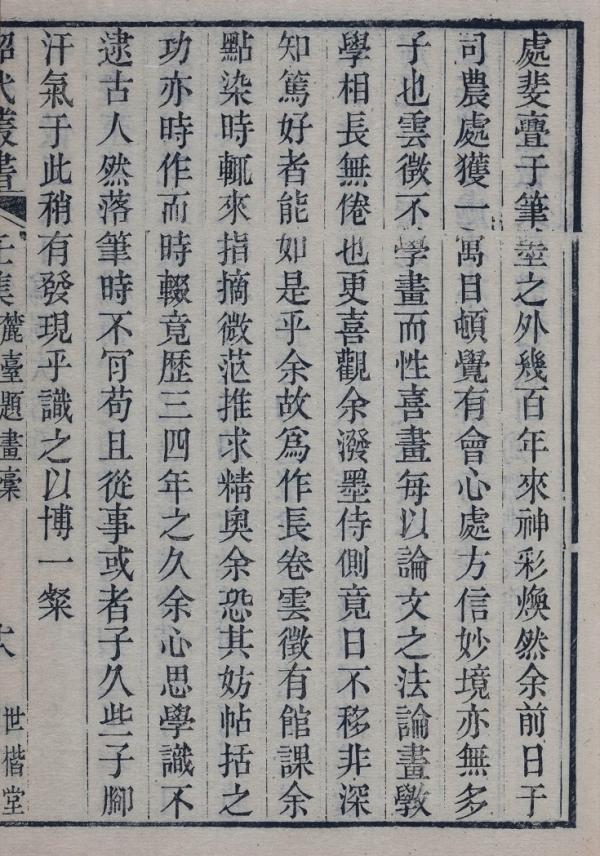 處斐亹于筆墨之外幾百年來神彩煥然余前日于
司農處獲一寓目頓覺有會心處方信妙境亦無多
子也雲徵不學畫而性喜畫每以論文之法論畫敎
學相長無倦也更喜觀余潑墨侍側竟日不移非深
知篤好者能如是乎余故爲作長卷雲徵有館課余
點染時輒來指摘微茫推求精奧余恐其妨帖括之
功亦時作而時輟竟歷三四年之久余心思學識不
逮古人然落筆時不肎苟且從事或者子久些子腳
汗氣于此稍有發現乎識之以博一粲
昭代叢書 壬集 麓臺題畫藁 世楷堂